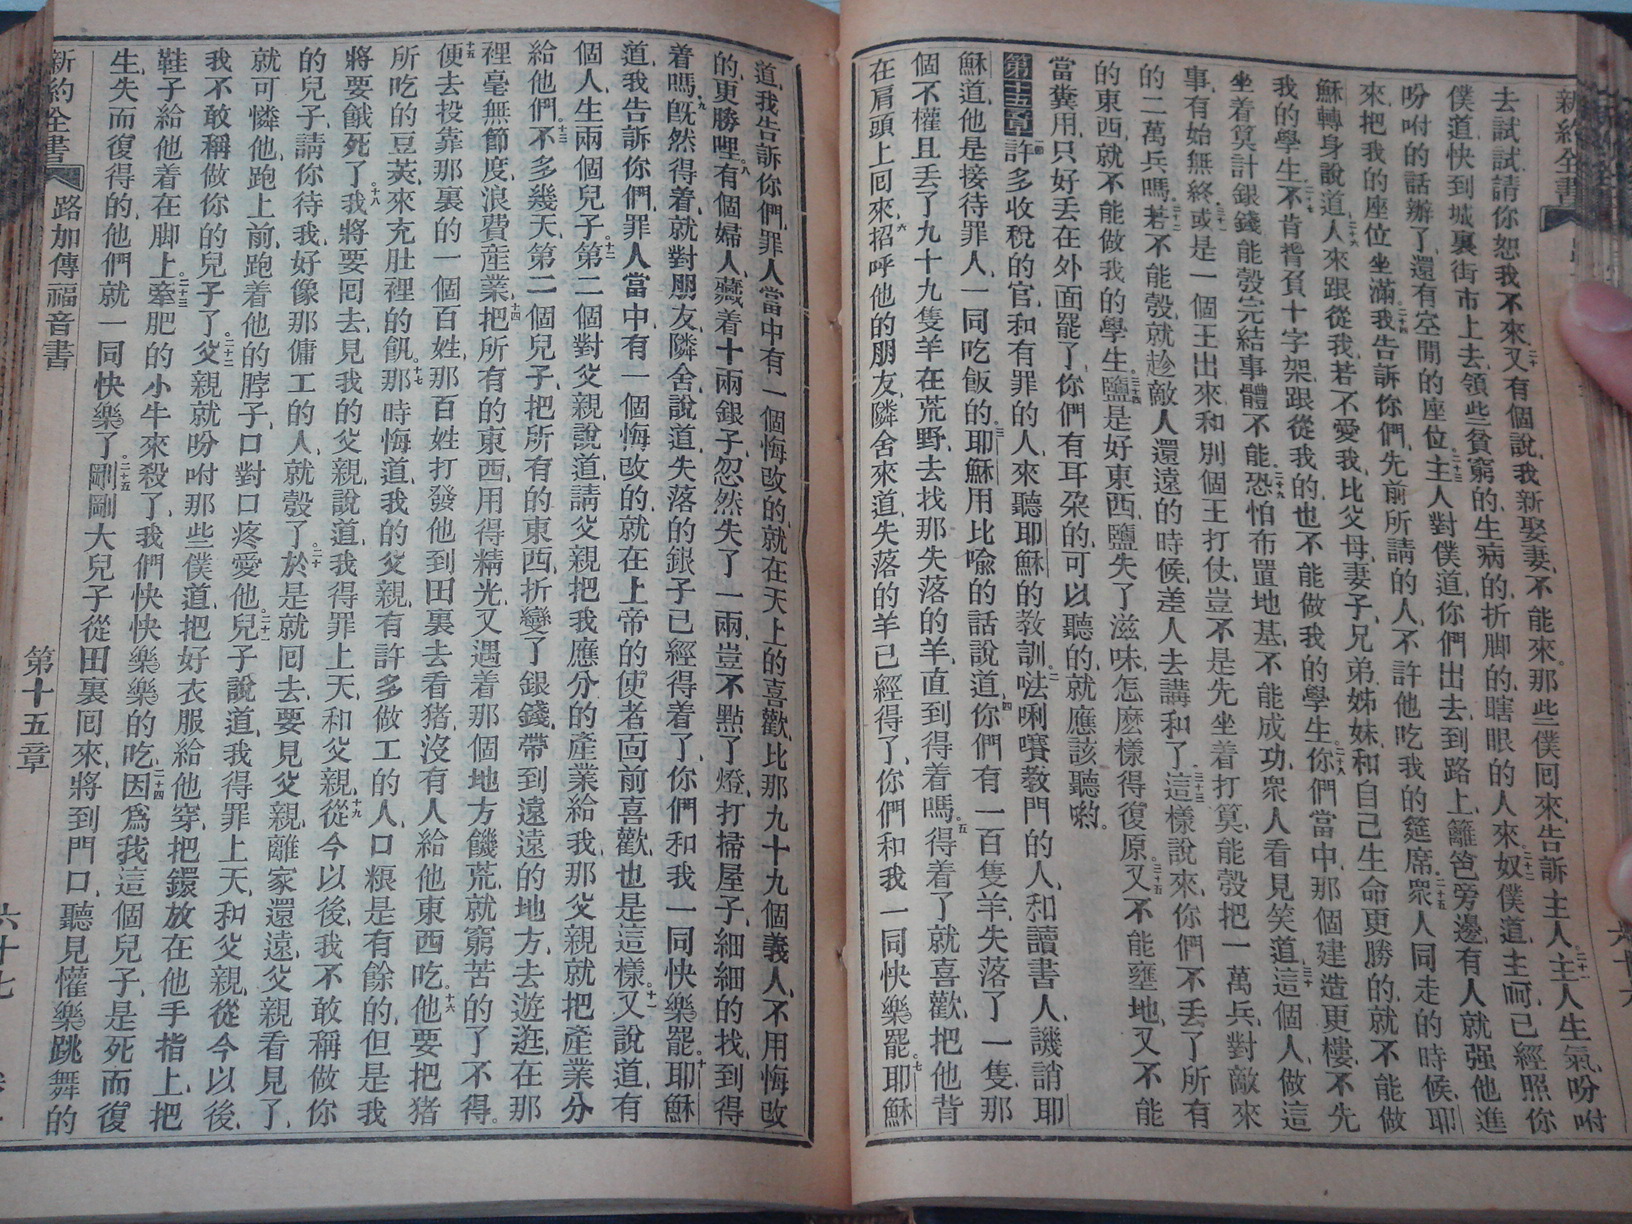 新約全書
去試試請你恕我不來二十又有個說我新娶妻不能來那些僕囘來告訴主人二十一主人生氣吩咐
僕道快到城裏街市上去領些貧窮的生病的折脚的瞎眼的人來二十二奴僕道主呵已經照你
吩咐的話辦了還有空閒的座位二十三主人對僕道你們出去到路上籬笆旁邊有人就强他進
來把我的座位坐滿二十四我告訴你們先前所請的人不許他吃我的筵席二十五衆人同走的時候耶
穌轉身說道二十六人來跟從我若不愛我比父母妻子兄弟姊妹和自己生命更勝的就不能做
我的學生二十七不肯揹負十字架跟從我的也不能做我的學生二十八你們當中那個建造更樓不先
坐着筭計銀錢能彀完結事體不能二十九恐怕布置地基不能成功衆人看見笑道三十這個人做這
事有始無終三十一或是一個王出來和別個王打仗豈不是先坐着打筭能彀把一萬兵對敵來
的二萬兵嗎三十二若不能彀就趁敵人還遠的時候差人去講和了三十三這樣說來你們不丢了所有
的東西就不能做我的學生三十四鹽是好東西鹽失了滋味怎麽樣得復原三十五又不能壅地又不能
當糞用只好丢在外面罷了你們有耳朶的可以聽的就應該聽喲
第十五章一許多收稅的官和有罪的人來聽耶穌的教訓二𠵽唎㘔教門的人和讀書人譏誚耶
穌道他是接待罪人一同吃飯的三耶穌用比喻的話說道四你們有一百隻羊失落了一隻那
個不權且丢了九十九隻羊在荒野去找那失落的羊直到得着嗎五得着了就喜歡把他背
在肩頭上囘來六招呼他的朋友隣舍來道失落的羊已經得了你們和我一同快樂罷七耶穌
道我告訴你們罪人當中有一個悔改的就在天上的喜歡比那九十九個義人不用悔改
的更勝哩八有個婦人藏着十兩銀子忽然失了一兩豈不點了燈打掃屋子細細的找到得
着嗎九旣然得着就對朋友隣舍說道失落的銀子已經得着了你們和我一同快樂罷十耶穌
道我告訴你們罪人當中有一個悔改的就在上帝的使者面前喜歡也是這樣十一又說道有
個人生兩個兒子十二第二個對父親說道請父親把我應分的產業給我那父親就把產業分
給他們十三不多幾天第二個兒子把所有的東西折變了銀錢帶到遠遠的地方去遊逛在那
裡毫無節度浪費産業十四把所有的東西用得精光又遇着那個地方饑荒就窮苦的了不得
十五便去投靠那裏的一個百姓那百姓打發他到田裏去看猪沒有人給他東西吃十六他要把猪
所吃的豆莢來充肚裡的飢十七那時悔道我的父親有許多做工的人口糧是有餘的但是我
將要餓死了十八我將要囘去見我的父親說道我得罪上天和父親十九從今以後我不敢稱做你
的兒子請你待我好像那傭工的人就彀了二十於是就囘去要見父親離家還遠父親看見了
就可憐他跑上前跑着他的脖子口對口疼愛他二十一兒子說道我得罪上天和父親從今以後
我不敢稱做你的兒子了二十二父親就吩咐那些僕道把好衣服給他穿把鐶放在他手指上把
鞋子給他着在脚上二十三牽肥的小牛來殺了我們快快樂樂的吃二十四因爲我這個兒子是死而復
生失而復得的他們就一同快樂了二十五剛剛大兒子從田裏囘來將到門口聽見懽樂跳舞的
新約全書 路加傳福音書 第十五章 六十七